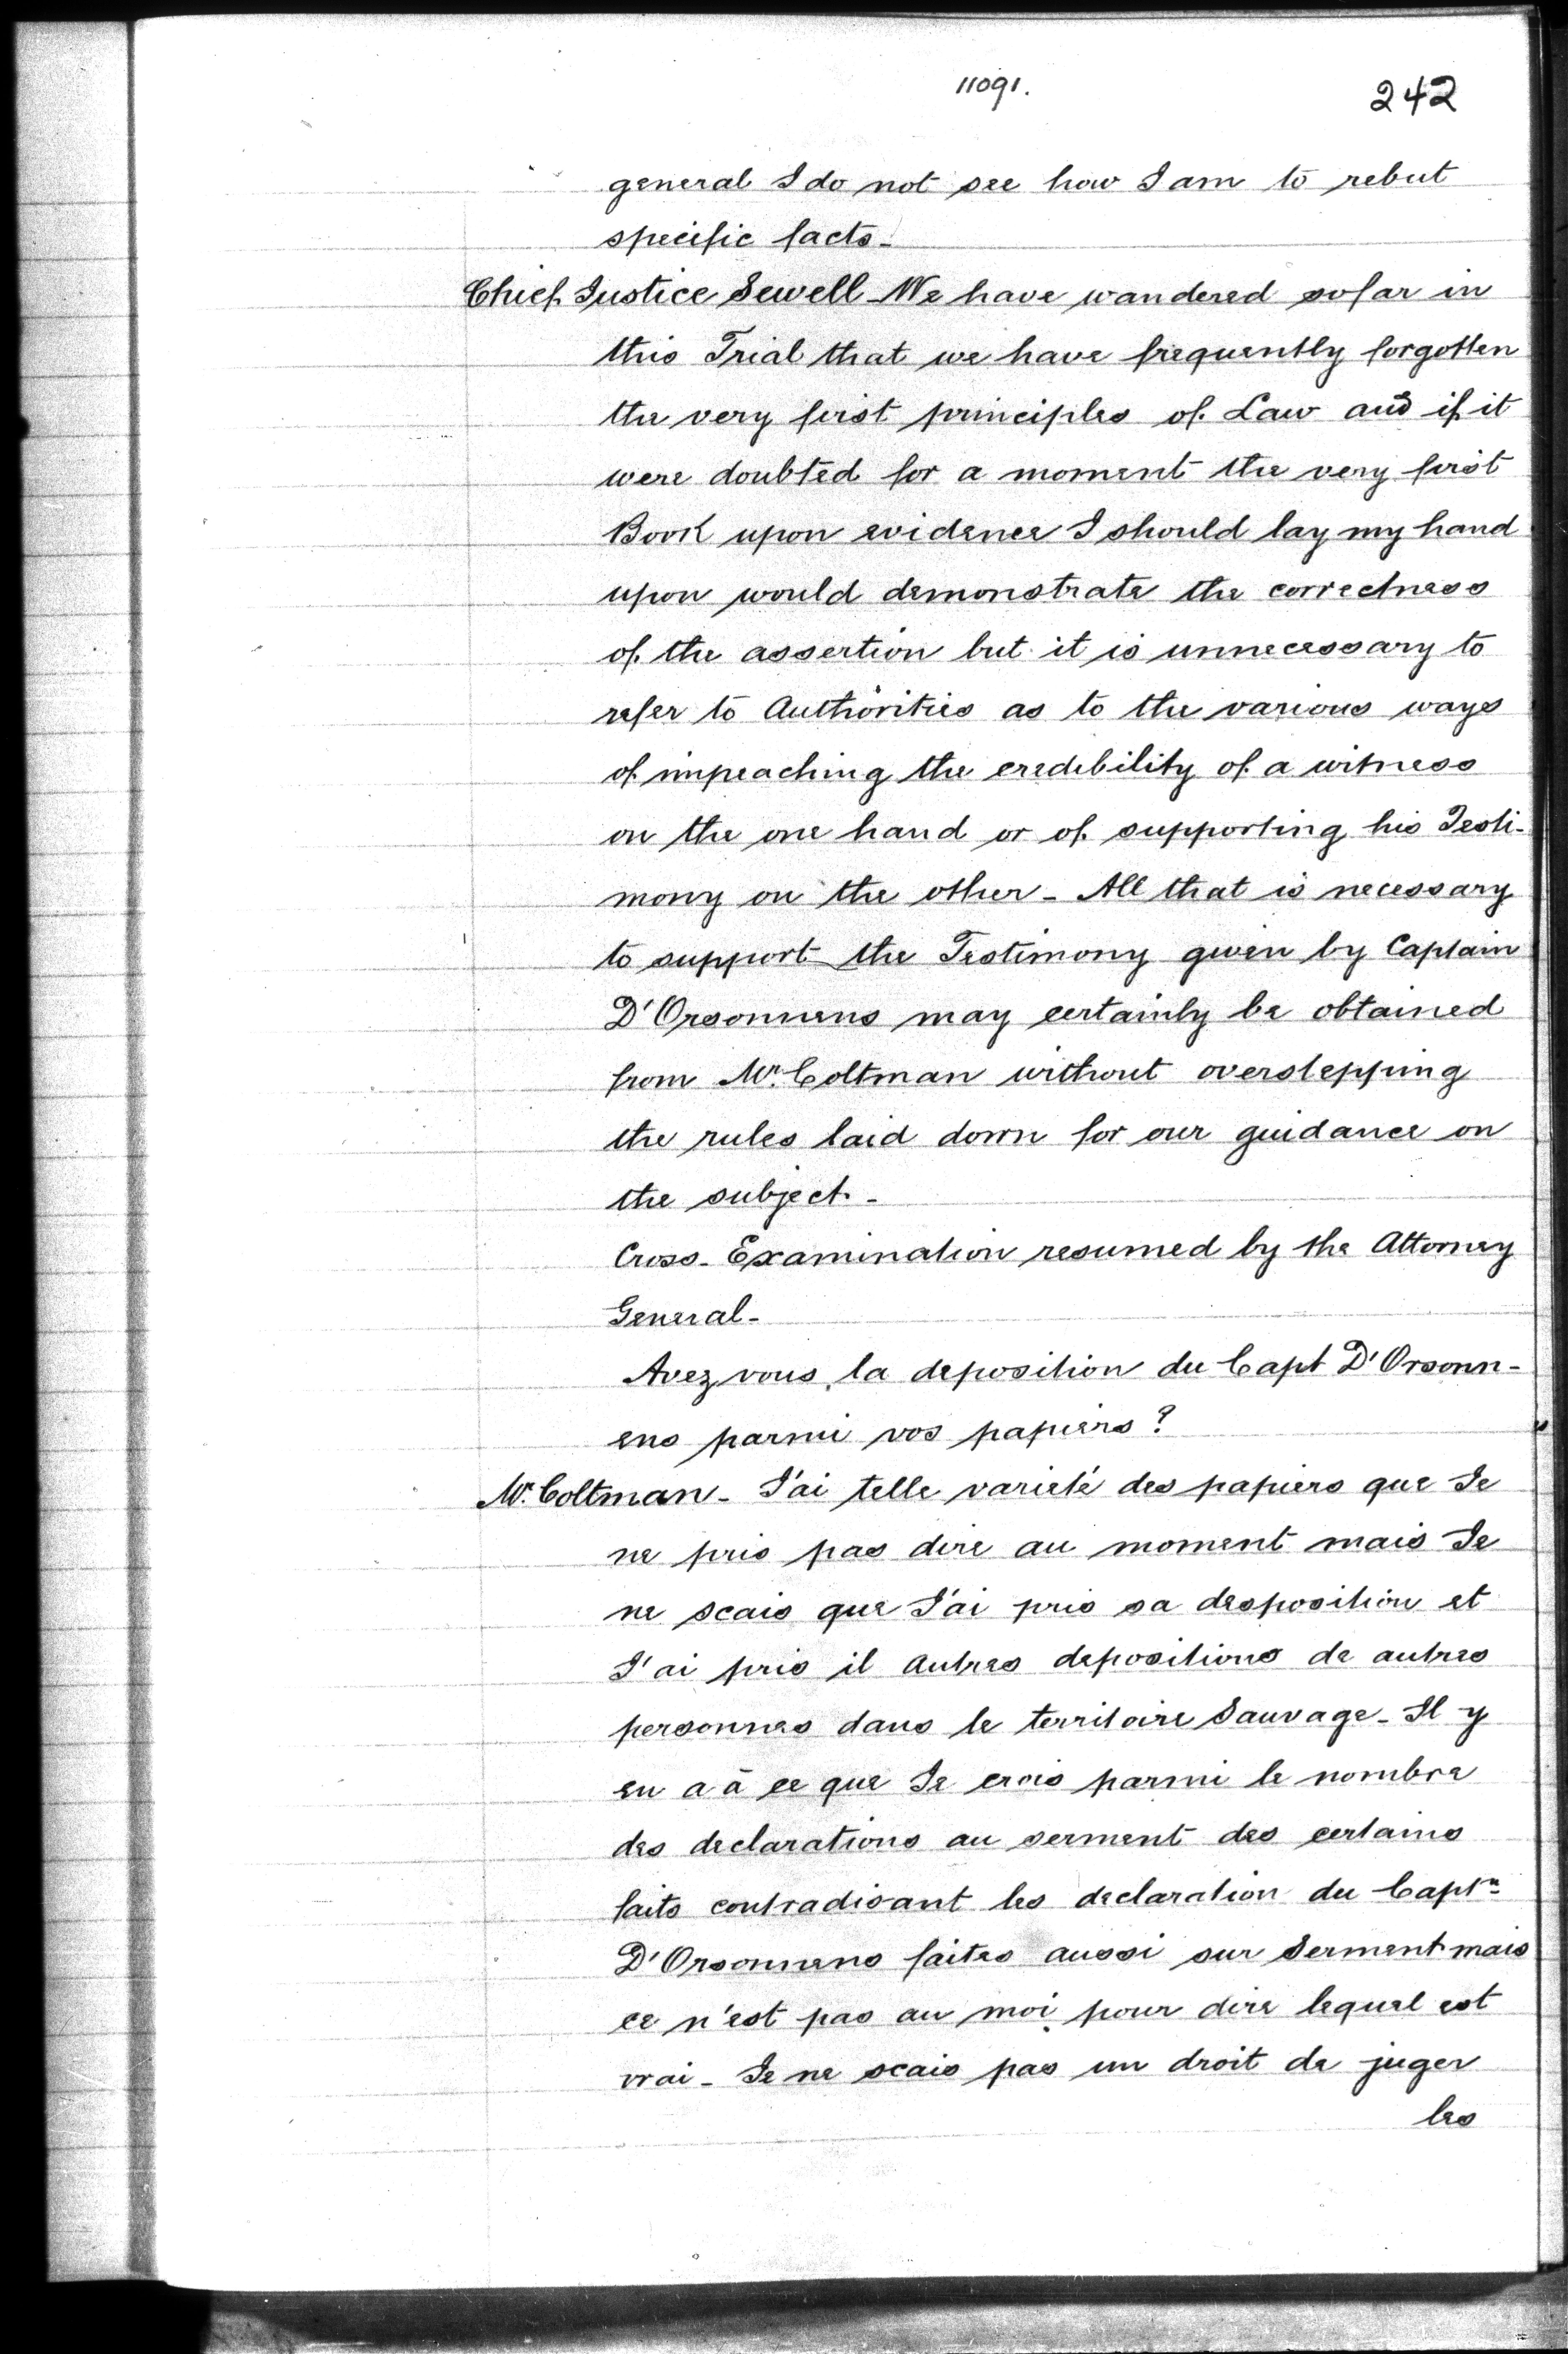 11091.
242
general I do not see how I am to rebut
specific facts-
Chief Justice Sewell - We have wandered so far in
this Trial that we have frequently forgotten
the very first principles of Law and if it
were doubted for a moment the very first
Book upon evidence I should lay my hand
upon would demonstrate the correctness
of the assertion but it is unnecessary to
refer to Authorities as to the various ways
of impeaching the credibility of a witness
on the one hand or of supporting his Testi-
mony on the other - All that is necessary
to support the Testimony given by Captain
D'Orsonnens may certainly be obtained
from Mr. Coltman without overstepping
the rules laid down for our guidance on
the subject. -
Cross- Examination resumed by the Attorney
General-
Avez vous la deposition du Capt D'Orsonn-
ens parmi vos papiers?
Mr. Coltman - J'ai telle varieté des papiers que Je
ne pris pas dire au moment mais Je
ne scais que J'ai pris sa desposition et
J'ai pris il Autres depositions de autres
personnes dans le territoire Sauvage - Il y
en a à ce que Je crois parmi le nombre
des declarations au serment des certains
faits contradisant les declaration du Captn
D'Orsonnens faites aussi sur Serment mais
ce n'est pas au moi pour dire lequel est
vrai - Je ne scais pas un droit de juger
les